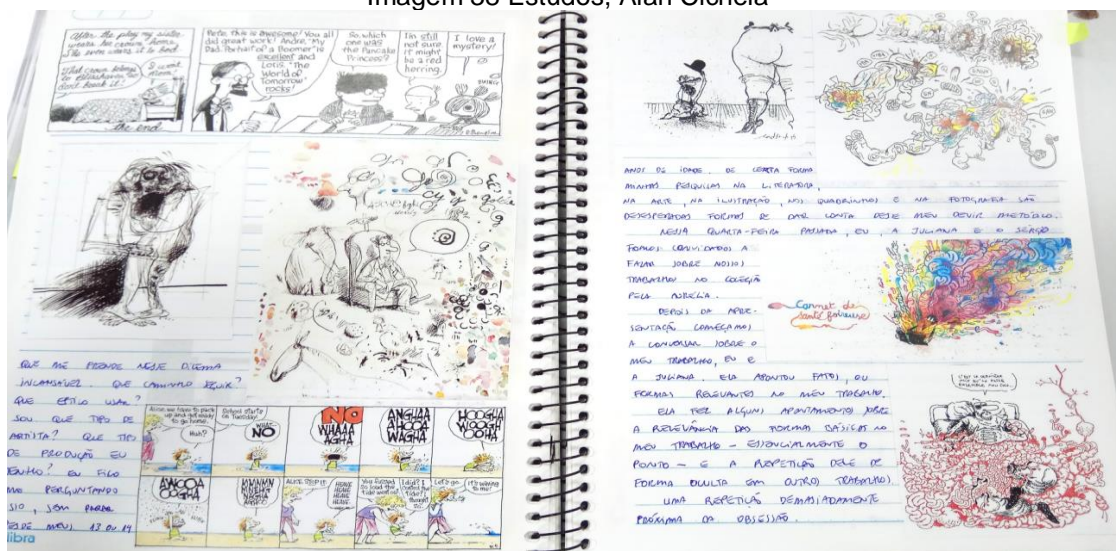 Imagem 38 Estudos, Alan Cichela
After the play my sister
wears her crown home.
She even wears it to bed.
What crown belongs
to
I want
Mom.
don't break it!
the end
Pete, this is awesome! You all
did great work! Andre, "My
Dad, Portrait of a Boomer" is
excellent and
Lotis, "The
World of
Tomorrow"
rocks!
So, which
one was
the Pancake
Princess?
I'm still
not sure.
it might
be a red
herring.
I love a
mystery!
QUE ME PRENDE NESSE DILEMA
INCANSÁVEL. QUE CAMINHO SEGUIR?
QUE ESTILO USAR?
SOU QUE TIPO DE
ARTISTA? QUE TIPO
DE PRODUÇÃO EU
TENHO? EU FICO
ME PERGUNTANDO
ISSO, SEM PARAR
DESDE MEUS 13 OU 14
libra
Alice, we have to pack
up and get ready
to go home.
Huh?
School starts
on Tuesday.
WHAT
NO
NO
WHAAA
AGHA
ANGHAA
AHOOA
WAGHA
HOOGHA
WOOGH
OOHA
AWOOA
OOGHA
ALICE, STOP IT.
HEAVE
HEAVE
HEAVE
HEAVE
Let's go.
It's waving
to me!
ANOS DE IDADE. DE CERTA FORMA
MINHAS PESQUISAS NA LITERATURA,
NA ARTE, NA ILUSTRAÇÃO, NOS QUADRINHOS E NA FOTOGRAFIA SÃO
DESESPERADAS FORMAS DE DAR CONTA DESSE MEU DEVIR METÓDICO.
NESSA QUARTA-FEIRA PASSADA, EU, A JULIANA E O SÉRGIO
FOMOS CONVIDADOS A
FALAR SOBRE NOSSOS
TRABALHOS NO COLÉGIO
PELA AURELIA.
DEPOIS DA APRE-
SENTAÇÃO COMEÇAMOS
A CONVERSAR SOBRE O
MEU TRABALHO, EU E
A JULIANA. ELA APONTOU FATOS, OU
FORMAS RELEVANTES NO MEU TRABALHO.
ELA FEZ ALGUNS APONTAMENTOS SOBRE
A RELEVÂNCIA DAS FORMAS BÁSICAS NO
MEU TRABALHO - ESSENCIALMENTE O
PONTO - E A REPETIÇÃO DELE DE
FORMA OCULTA EM OUTROS TRABALHOS.
UMA REPETIÇÃO DEMASIADAMENTE
PRÓXIMA DA OBSESSÃO.
Carnet de
santé foireuse